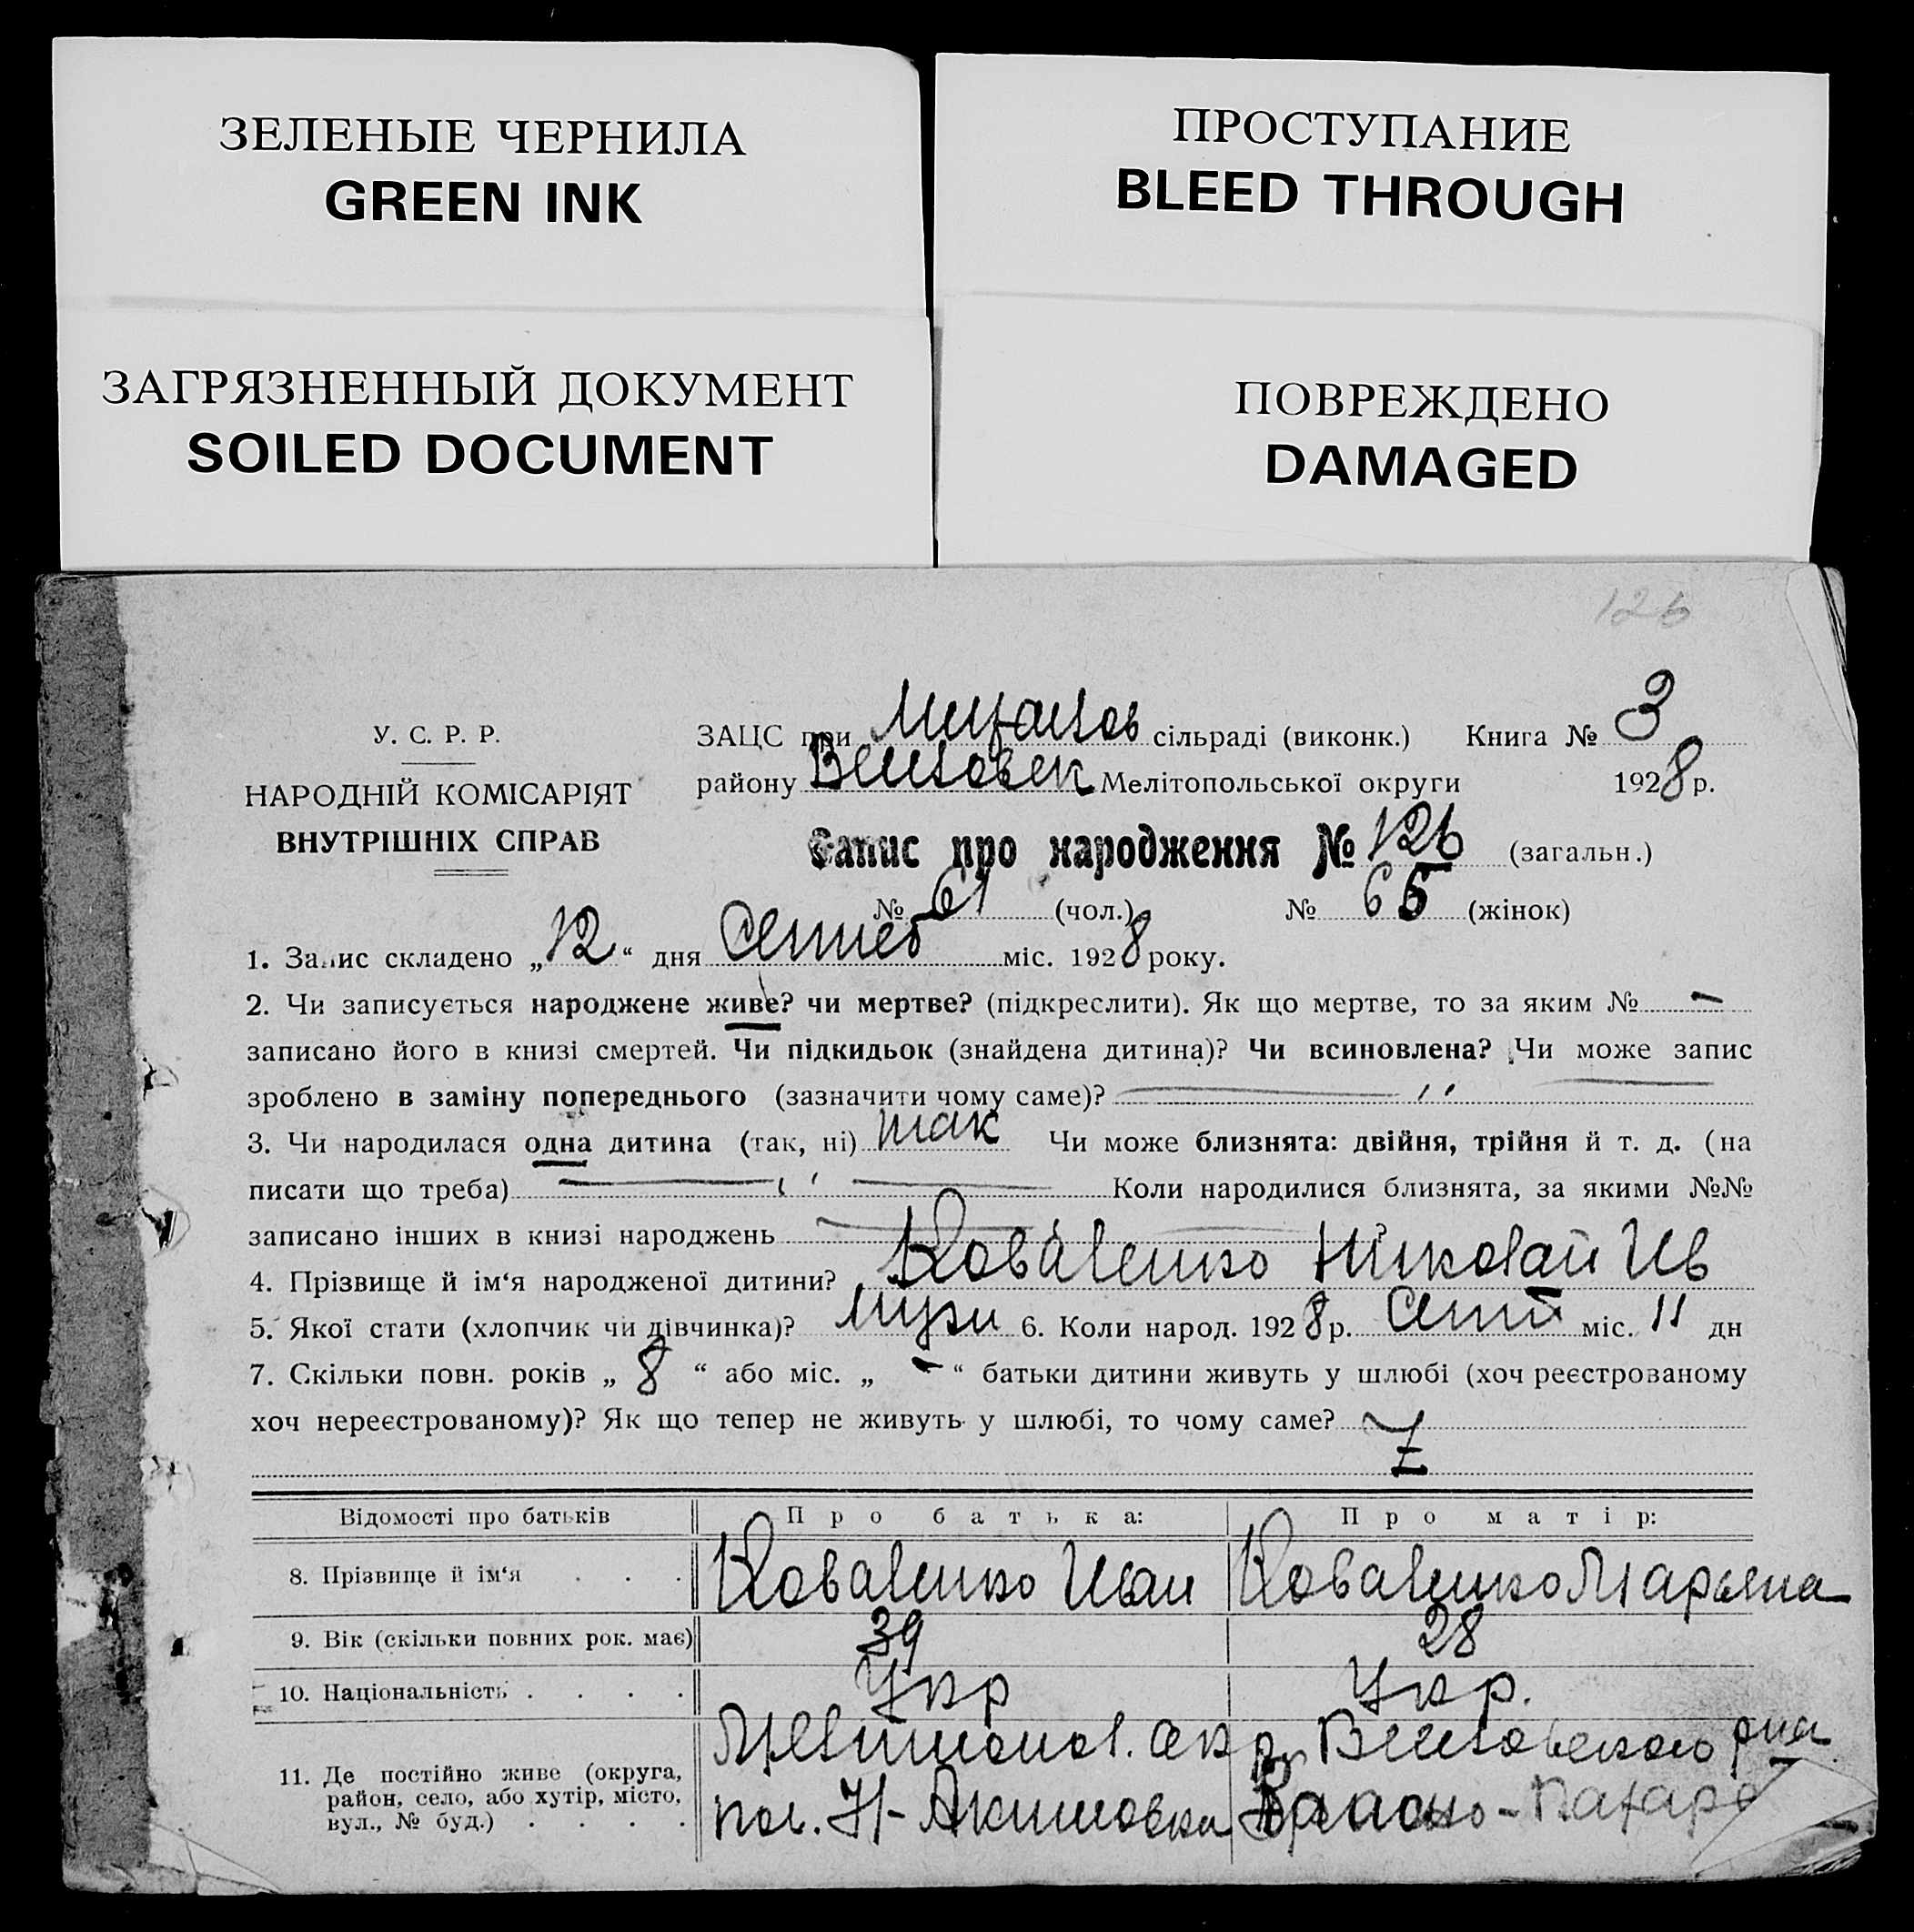 ЗЕЛЕНЫЕ ЧЕРНИЛА
GREEN INK
ПРОСТУПАНИЕ
BLEED THROUGH
ЗАГРЯЗНЕННЫЙ ДОКУМЕНТ
SOILED DOCUMENT
ПОВРЕЖДЕНО
DAMAGED
126
У. С. Р. Р.
НАРОДНІЙ КОМІСАРІЯТ
ВНУТРІШНІХ СПРАВ
ЗАЦС при сільраді (виконк.) Книга № 3
району Мелітопольської округи 1928 р.
Запис про народження № 126 (загальн.)
№ 61 (чол.) № 65 (жінок)
1. Запис складено „12“ дня міс. 1928 року.
2. Чи записується народжене живе? чи мертве? (підкреслити). Як що мертве, то за яким № –
записано його в книзі смертей. Чи підкидьок (знайдена дитина)? Чи всиновлена? Чи може запис
зроблено в заміну попереднього (зазначити чому саме)?
3. Чи народилася одна дитина (так, ні) так Чи може близнята: двійня, трійня й т. д. (на
писати що треба) Коли народилися близнята, за якими №№
записано інших в книзі народжень
4. Прізвище й ім‘я народженої дитини? Коваленко Николай Ив
5. Якої стати (хлопчик чи дівчинка)? 6. Коли народ. 1928 р. міс. 11 дн
7. Скільки повн. років „8“ або міс. „–“ батьки дитини живуть у шлюбі (хоч реєстрованому
хоч нереєстрованому)? Як що тепер не живуть у шлюбі, то чому саме?
Відомості про батьків Про батька: Про матір:
8. Прізвище й ім‘я . . . Коваленко Иван Коваленко Марьяна
9. Вік (скільки повних рок. має) 39 28
10. Національність . . . . Укр Укр.
11. Де постійно живе (округа,
район, село, або хутір, місто,
вул., № буд.) . . . .
Мелитопол. окр. Веселовского рна
пос. Н-Акимовка